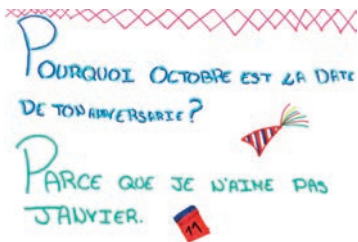 POURQUOI OCTOBRE EST LA DATE
DE TON ANNIVERSARIE?
PARCE QUE JE N'AIME PAS
JANVIER.
11